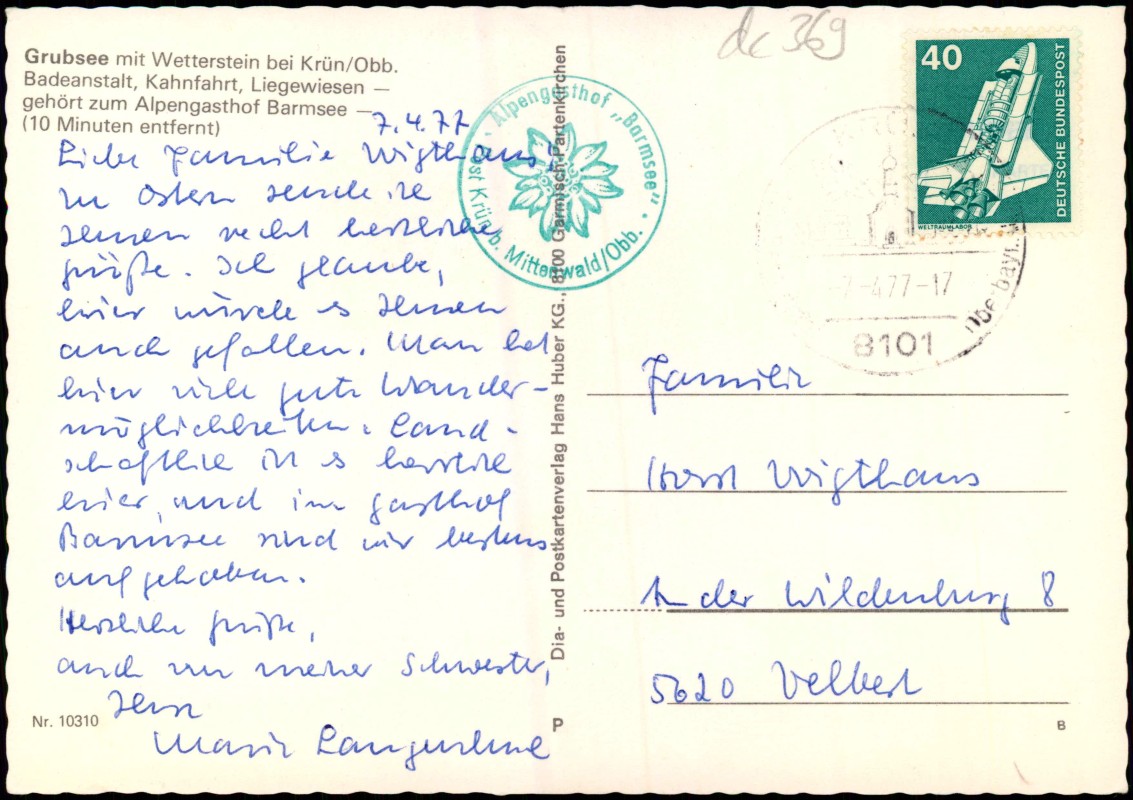 Grubsee mit Wetterstein bei Krün/Obb.
Badeanstalt, Kahnfahrt, Liegewiesen —
gehört zum Alpengasthof Barmsee —
(10 Minuten entfernt)
7.4.77
Liebe Familie Wigthaus!
Zu Ostern sende ich
Ihnen recht herzliche
Grüße. Ich glaube,
hier würde es Ihnen
auch gefallen. Man hat
hier viele gute Wander-
möglichkeiten. Land-
schaftlich ist es herrlich
hier, und im Gasthof
Barmsee sind wir bestens
aufgehoben.
Herzliche Grüße,
auch von meiner Schwester,
Ihre
Maria
Nr. 10310
Alpengasthof „Barmsee"
Post Krün b. Mittenwald/Obb.
Dia- und Postkartenverlag Hans Huber KG., 8100 Garmisch-Partenkirchen
P
dc 369
40
DEUTSCHE BUNDESPOST
WELTRAUMLABOR
7-4.77-17
8101
Oberbay
Familie
Horst Wigthaus
An der Wildenburg 8
5620 Velbert
B